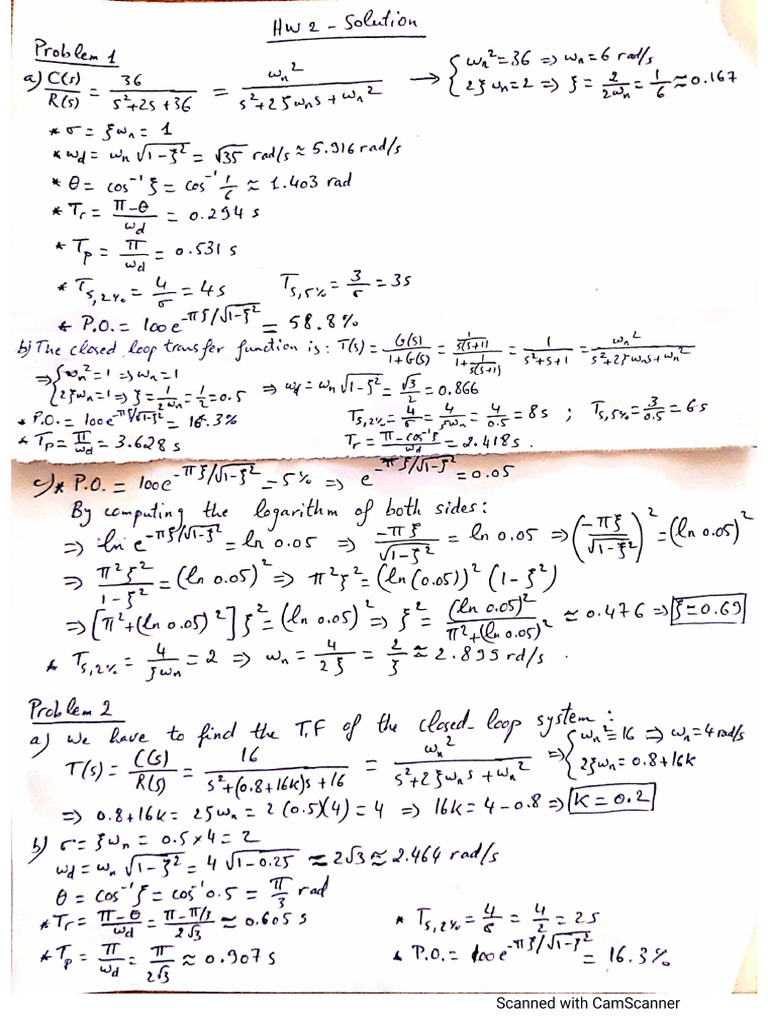 HW 2 - Solution
Problem 1
a) C(s)/R(s) = 36/(s²+2s+36) = ωn²/(s²+2ξωns+ωn²) → { ωn²=36 => ωn=6 rad/s
2ξωn=2 => ξ = 2/(2ωn) = 1/6 ≈ 0.167
* σ = ξωn = 1
* ωd = ωn √(1-ξ²) = √35 rad/s ≈ 5.916 rad/s
* θ = cos⁻¹ξ = cos⁻¹ 1/6 ≈ 1.403 rad
* Tr = (π-θ)/ωd = 0.294 s
* Tp = π/ωd = 0.531 s
* Ts,2% = 4/σ = 4s Ts,5% = 3/σ = 3s
* P.O. = 100e^(-πξ/√(1-ξ²)) = 58.8%
b) The closed loop transfer function is: T(s) = G(s)/(1+G(s)) = (1/(s(s+1)))/(1+1/(s(s+1))) = 1/(s²+s+1) = ωn²/(s²+2ξωns+ωn²)
=> { ωn²=1 => ωn=1
2ξωn=1 => ξ = 1/(2ωn) = 1/2 = 0.5 => ωd = ωn √(1-ξ²) = √3/2 = 0.866
* P.O. = 100e^(-πξ/√(1-ξ²)) = 16.3% Ts,2% = 4/σ = 4/(ξωn) = 4/0.5 = 8s ; Ts,5% = 3/0.5 = 6s
* Tp = π/ωd = 3.628 s Tr = (π-cos⁻¹ξ)/ωd = 2.418s.
c) * P.O. = 100e^(-πξ/√(1-ξ²)) = 5% => e^(-πξ/√(1-ξ²)) = 0.05
By computing the logarithm of both sides:
=> ln e^(-πξ/√(1-ξ²)) = ln 0.05 => -πξ/√(1-ξ²) = ln 0.05 => (-πξ/√(1-ξ²))² = (ln 0.05)²
=> π²ξ²/(1-ξ²) = (ln 0.05)² => π²ξ² = (ln(0.05))² (1-ξ²)
=> [π²+(ln 0.05)²] ξ² = (ln 0.05)² => ξ² = (ln 0.05)²/(π²+(ln 0.05)²) ≈ 0.476 => ξ=0.69
* Ts,2% = 4/(ξωn) = 2 => ωn = 4/(2ξ) = 2/ξ ≈ 2.899 rd/s.
Problem 2
a) We have to find the T.F of the closed-loop system:
T(s) = C(s)/R(s) = 16/(s²+(0.8+16k)s+16) = ωn²/(s²+2ξωns+ωn²) => { ωn²=16 => ωn=4 rad/s
2ξωn=0.8+16k
=> 0.8+16k = 2ξωn = 2(0.5)(4) = 4 => 16k = 4-0.8 => k=0.2
b) σ = ξωn = 0.5 × 4 = 2
ωd = ωn √(1-ξ²) = 4 √(1-0.25) ≈ 2√3 ≈ 2.464 rad/s
θ = cos⁻¹ξ = cos⁻¹0.5 = π/3 rad
* Tr = (π-θ)/ωd = (π-π/3)/(2√3) ≈ 0.605 s * Ts,2% = 4/σ = 4/2 = 2s
* Tp = π/ωd = π/(2√3) ≈ 0.907 s * P.O. = 100e^(-πξ/√(1-ξ²)) = 16.3%
Scanned with CamScanner